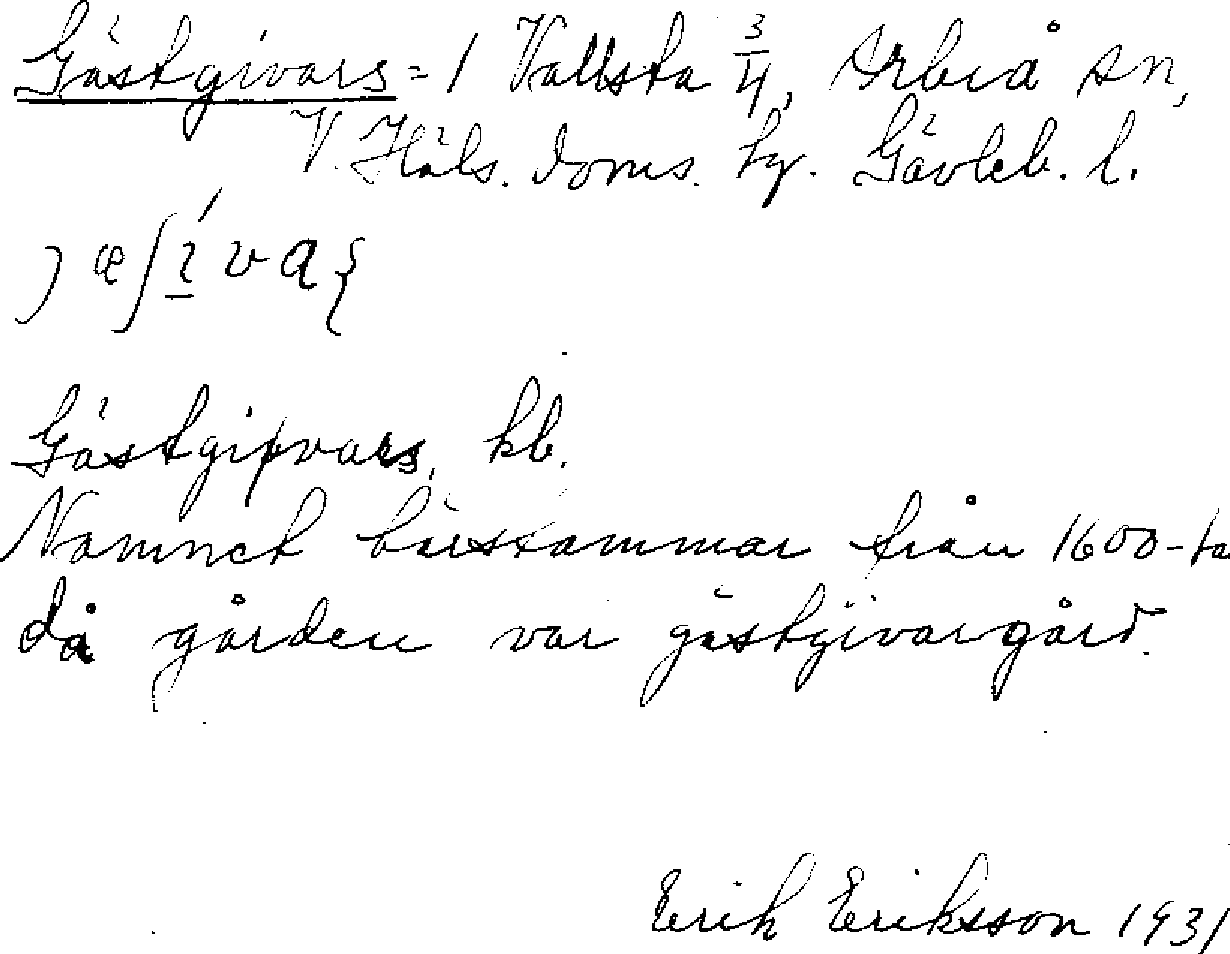 Gästgivars = 1 Vallsta 3/4, Arbrå sn,
V. Häls. doms. hg. Gävleb. l.
Gästgifvars, kb.
Namnet härstammar från 1600-ta
då gården var gästgivargård.
Erik Eriksson 1931